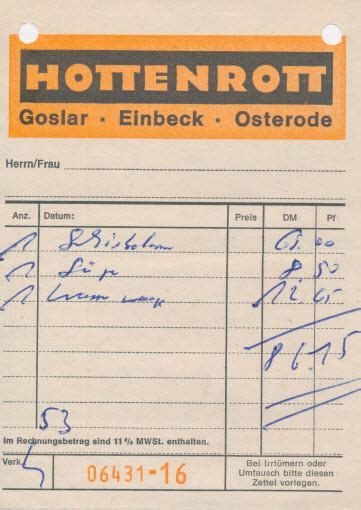 HOTTENROTT
Goslar · Einbeck · Osterode
Herrn/Frau
Anz. Datum: Preis DM Pf
1 65.00
1 8.50
1 12.65
86.15
53
Im Rechnungsbetrag sind 11% MWSt. enthalten.
Verk.
06431-16
Bei Irrtümern oder
Umtausch bitte diesen
Zettel vorlegen.